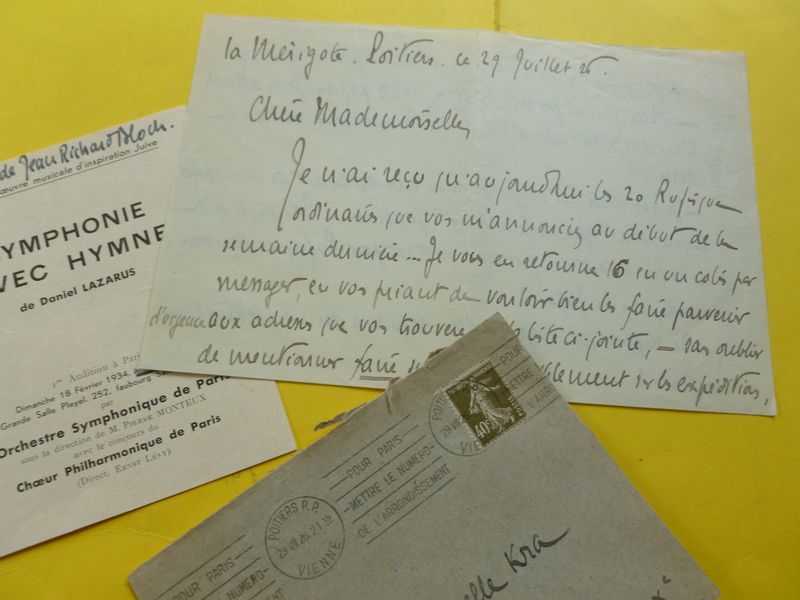 la Mérigote. Poitiers. ce 29 Juillet 26.
Chère Mademoiselle,
Je n'ai reçu qu'aujourd'hui les 20
ordinaires que vous m'annonciez au début de la
semaine dernière... Je vous en retourne 16 en un colis par
messager, en vous priant de vouloir bien les faire parvenir
d'urgence aux adresses que vous trouverez liste ci-jointe, — sans oublier
de mentionner faire sur les expéditions,
de Jean Richard Bloch.
œuvre musicale d'inspiration Juive
SYMPHONIE
AVEC HYMNE
de Daniel LAZARUS
1re Audition à Paris
Dimanche 18 Février 1934,
Grande Salle Pleyel, 252, faubourg
par
Orchestre Symphonique de Paris
sous la direction de M. PIERRE MONTEUX
avec le concours du
Chœur Philharmonique de Paris
(Direct. ERNST LÉVY)
POUR PARIS
METTRE LE NUMERO
DE L'ARRONDISSEMENT
POITIERS R.P.
29 VII 26 21 15
VIENNE
40c
POUR
METTRE LE
DE L'ARR
POUR PARIS
METTRE LE NUMERO
elle Kra